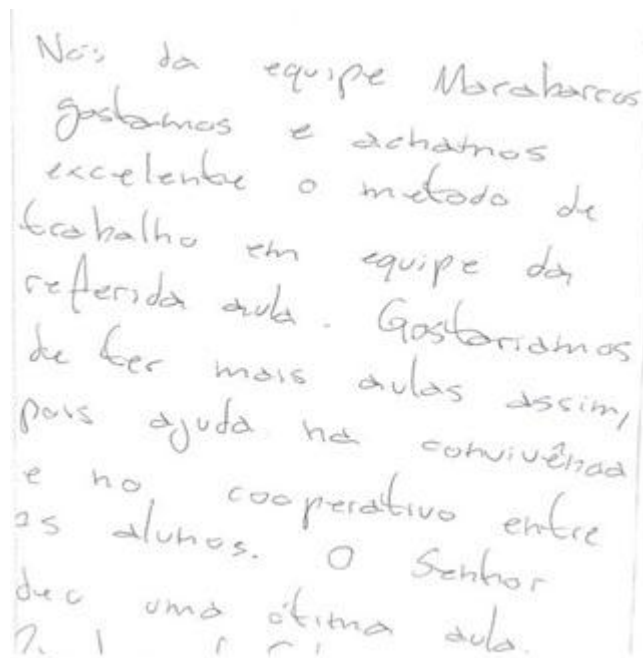 Nós da equipe Marabarcos
gostamos e achamos
excelente o metodo de
trabalho em equipe da
referida aula. Gostariamos
de ter mais aulas assim,
pois ajuda na convivência
e no cooperativo entre
os alunos. O Senhor
deu uma ótima aula.